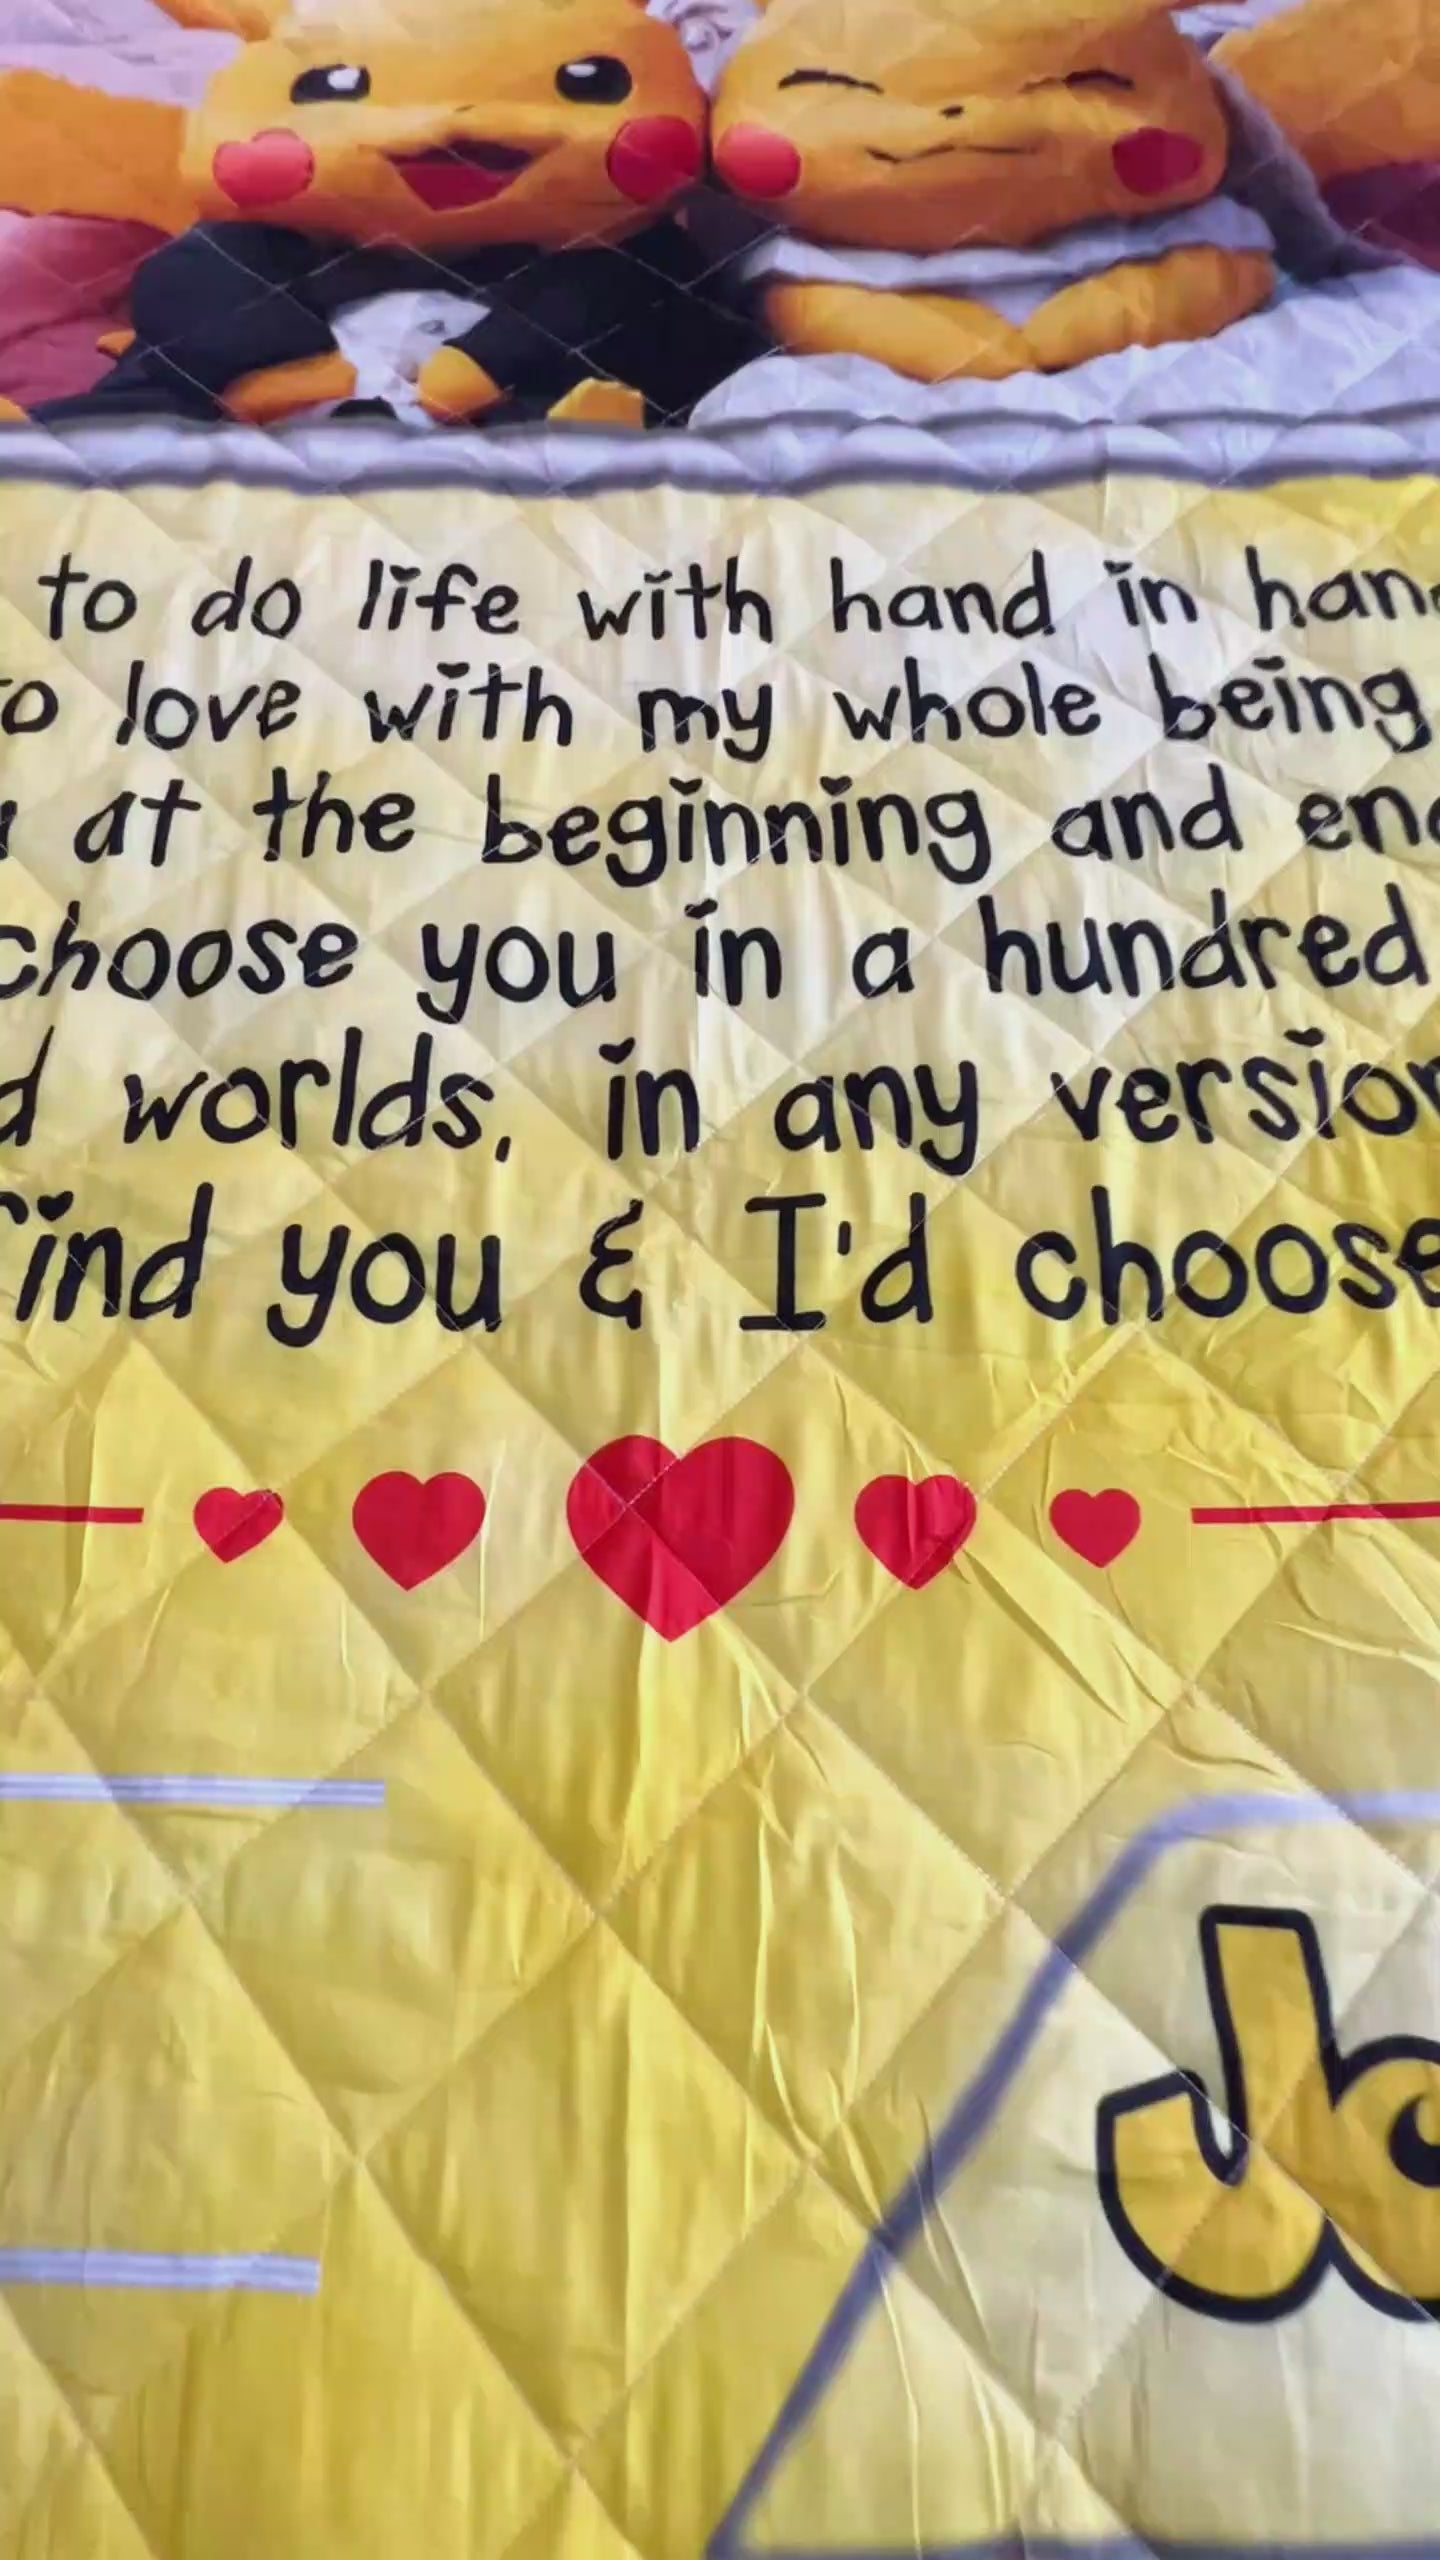 to do life with hand in han
to love with my whole being
at the beginning and end
choose you in a hundred
worlds, in any version
find you & I'd choose
Jo